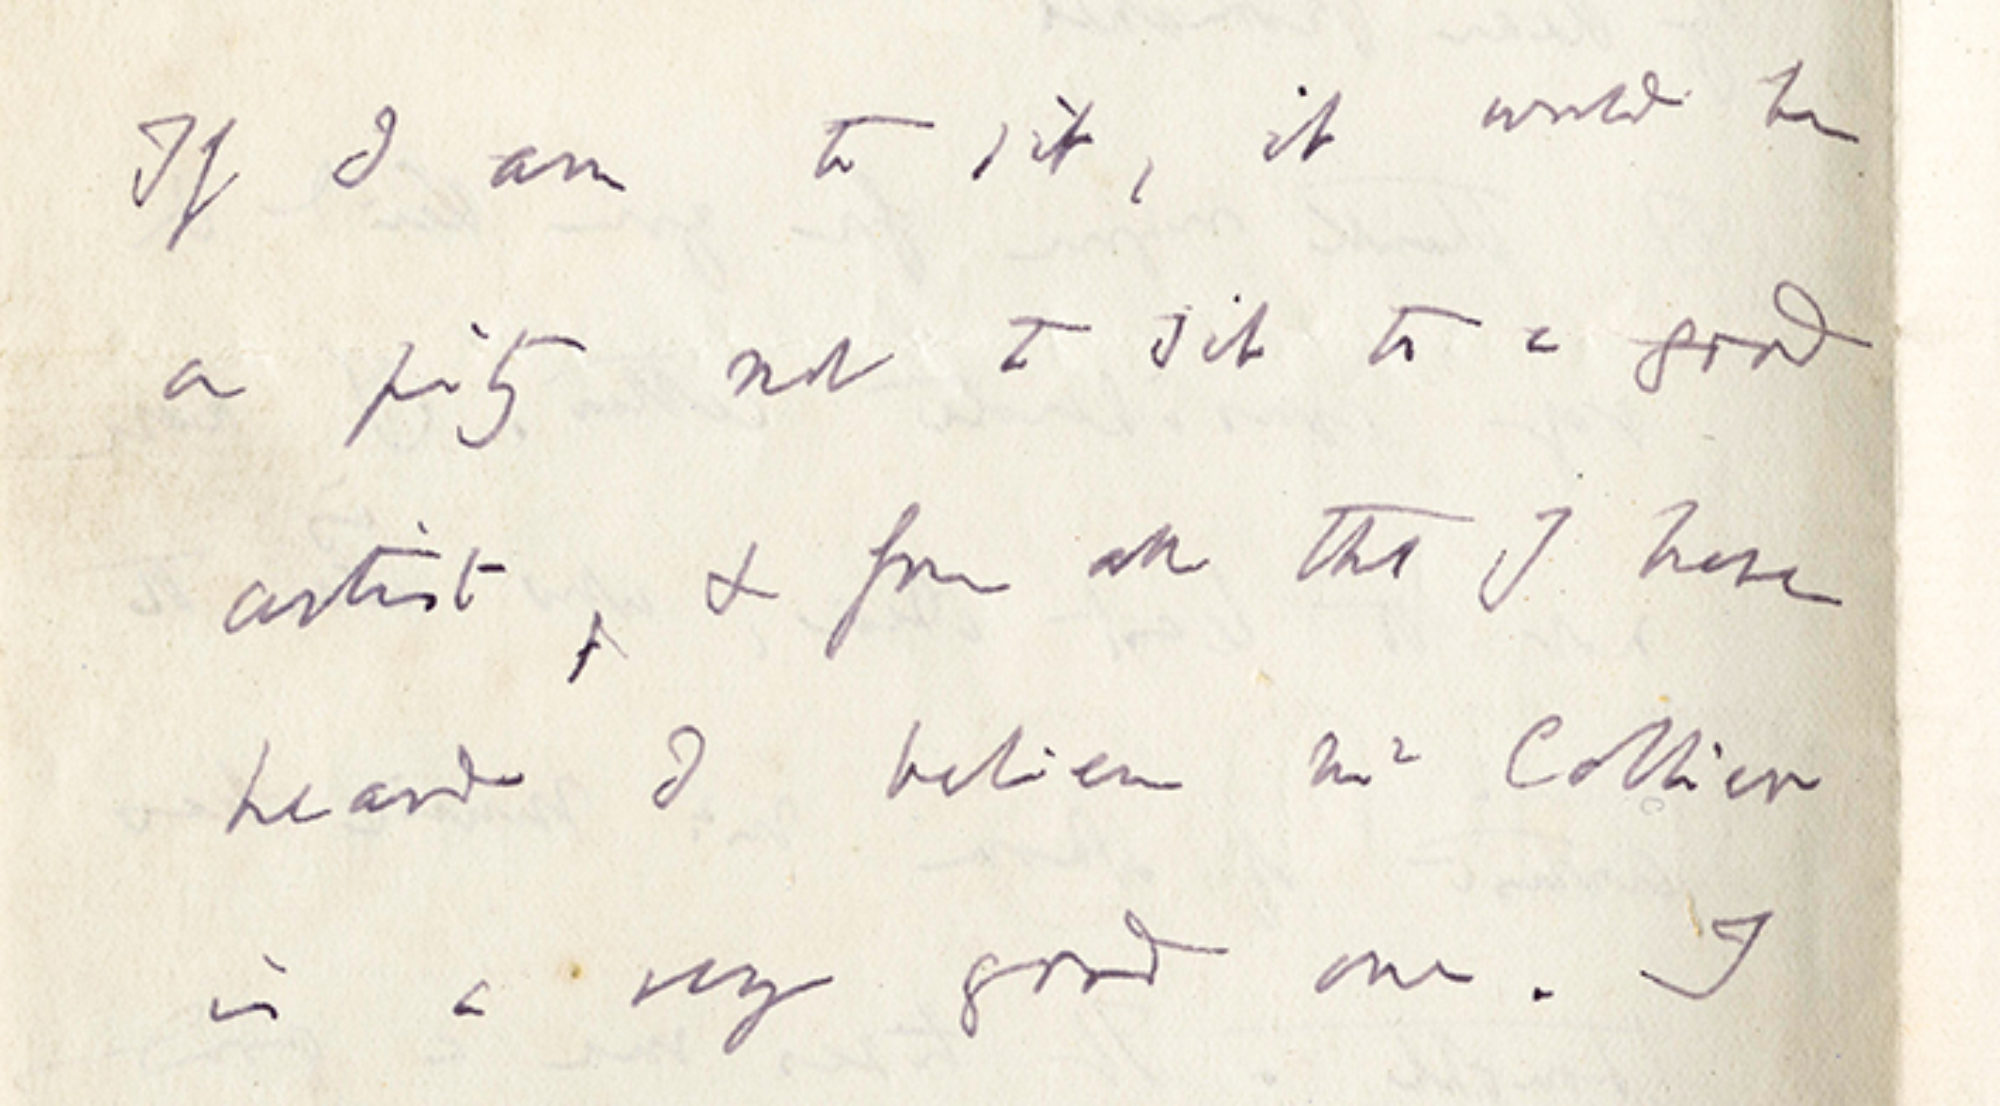 If I am to sit, it would be
a pity not to sit to a good
artist, & from all that I have
heard I believe Mr Collier
is a very good one. I